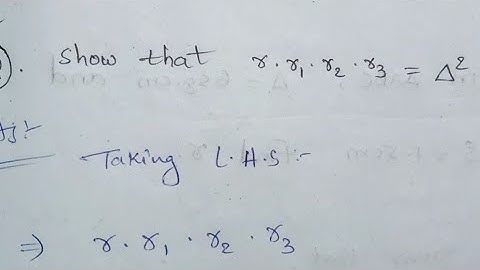 ). Show that r . r₁ . r₂ . r₃ = Δ²
Taking L.H.S :-
⇒ r . r₁ . r₂ . r₃